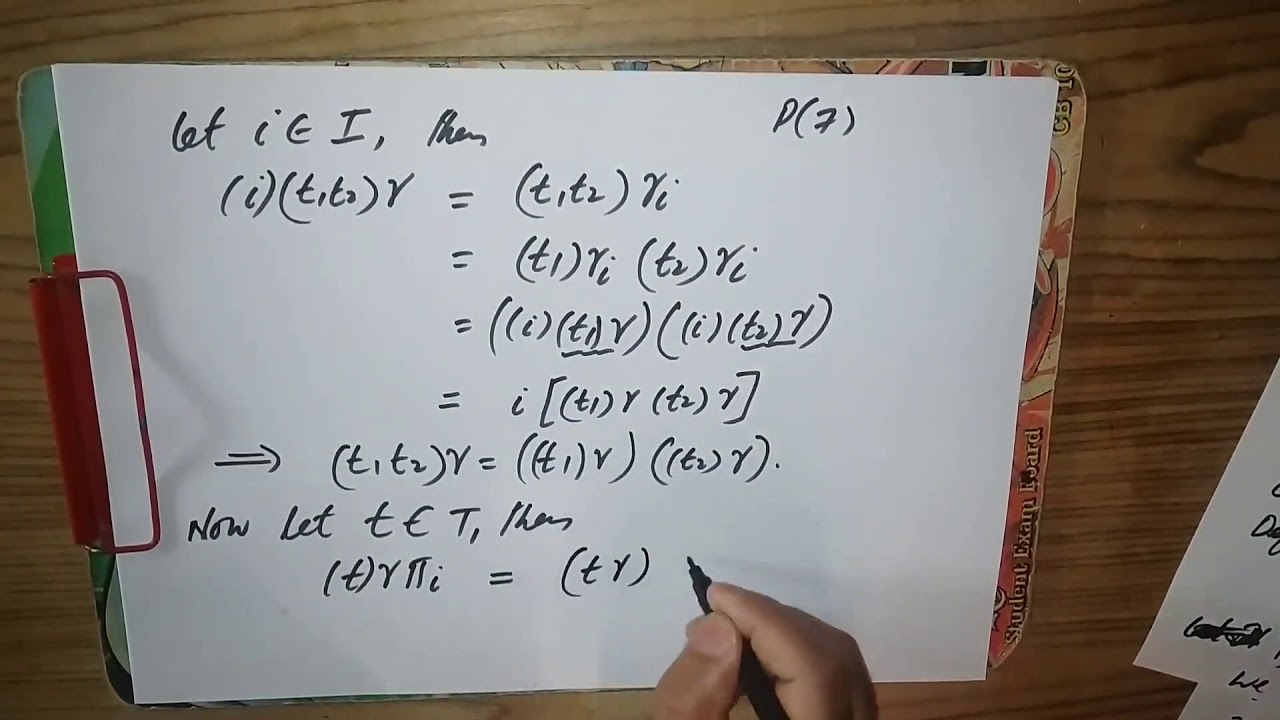 Let i ∈ I, then
P(7)
(i)(t₁t₂)γ = (t₁t₂)γᵢ
= (t₁)γᵢ (t₂)γᵢ
= ((i)(t₁)γ)((i)(t₂)γ)
= i [(t₁)γ (t₂)γ]
⟹ (t₁t₂)γ = ((t₁)γ) ((t₂)γ).
Now Let t ∈ T, then
(t)γπᵢ = (tγ)
Student Exam Board
we